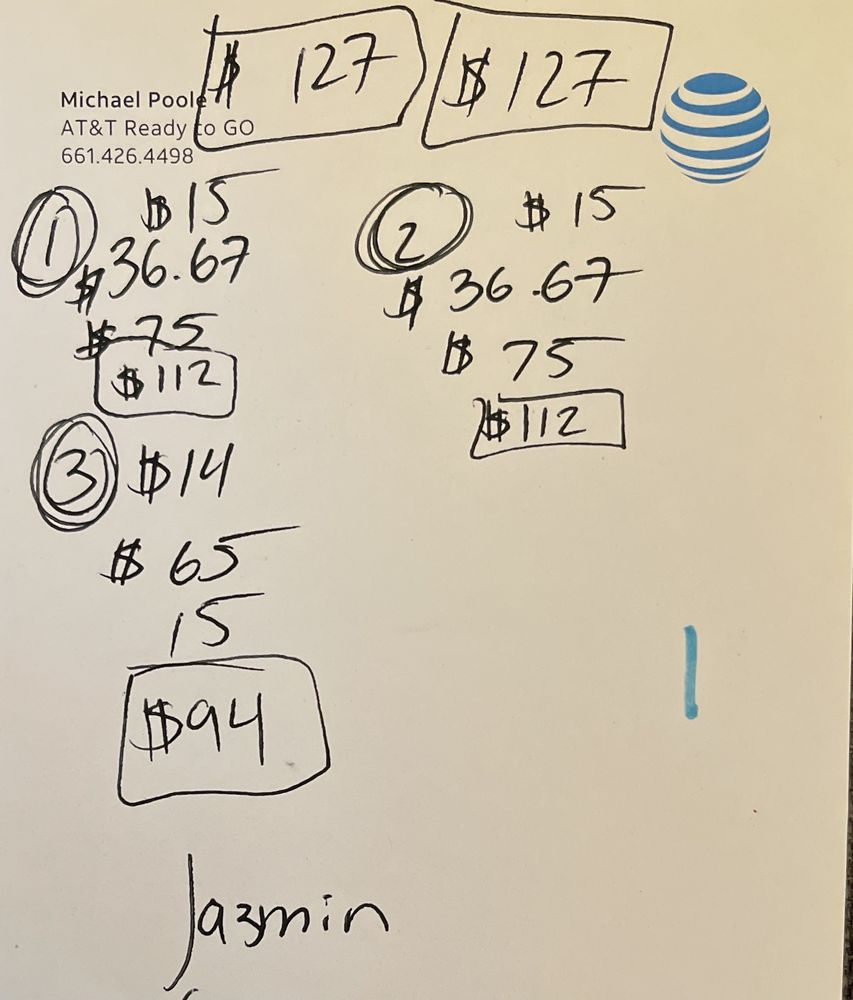 $ 127
$ 127
Michael Poole
AT&T Ready to GO
661.426.4498
1
$15
$36.67
$75
$112
2
$15
$36.67
$75
$112
3
$14
$65
15
$94
Jazmin